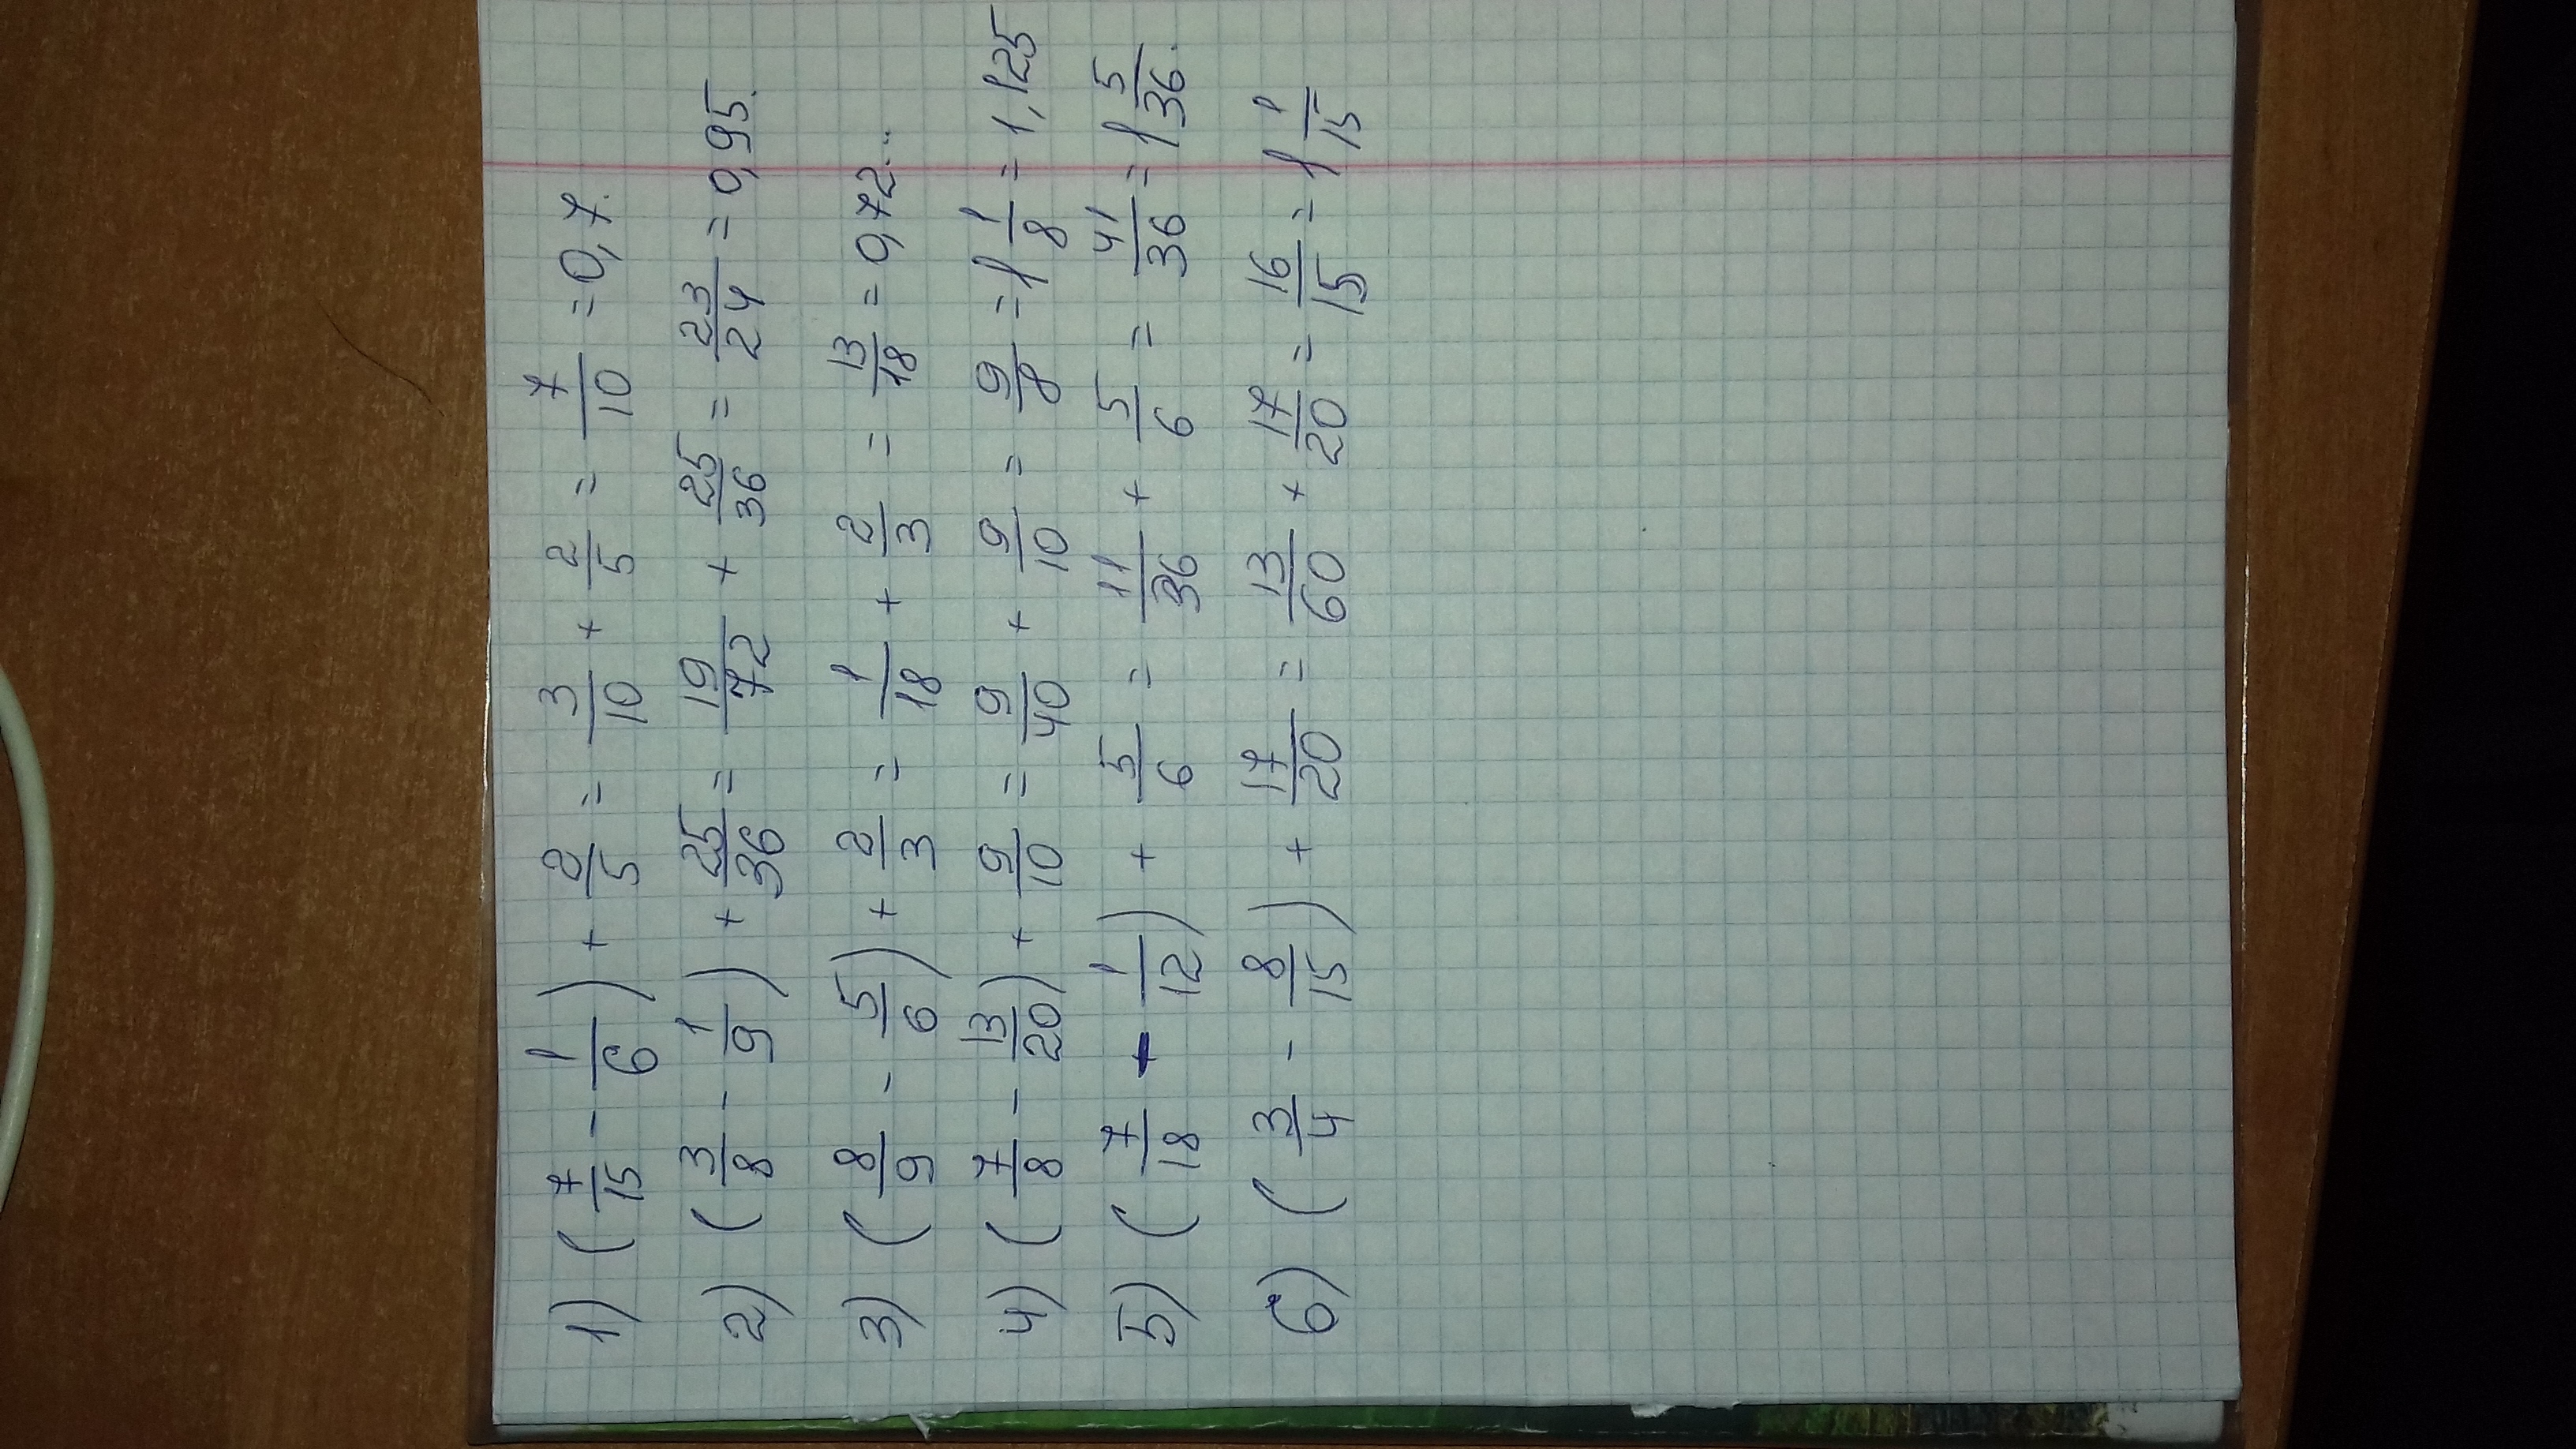 1) (7/15 - 1/6) + 2/5 = 3/10 + 2/5 = 7/10 = 0,7.
2) (3/8 - 1/9) + 25/36 = 19/72 + 25/36 = 23/24 = 0,95.
3) (8/9 - 5/6) + 2/3 = 1/18 + 2/3 = 13/18 = 0,72...
4) (7/8 - 13/20) + 9/10 = 9/40 + 9/10 = 9/8 = 1 1/8 = 1,125
5) (7/18 - 1/12) + 5/6 = 11/36 + 5/6 = 41/36 = 1 5/36.
6) (3/4 - 8/15) + 17/20 = 13/60 + 17/20 = 16/15 = 1 1/15